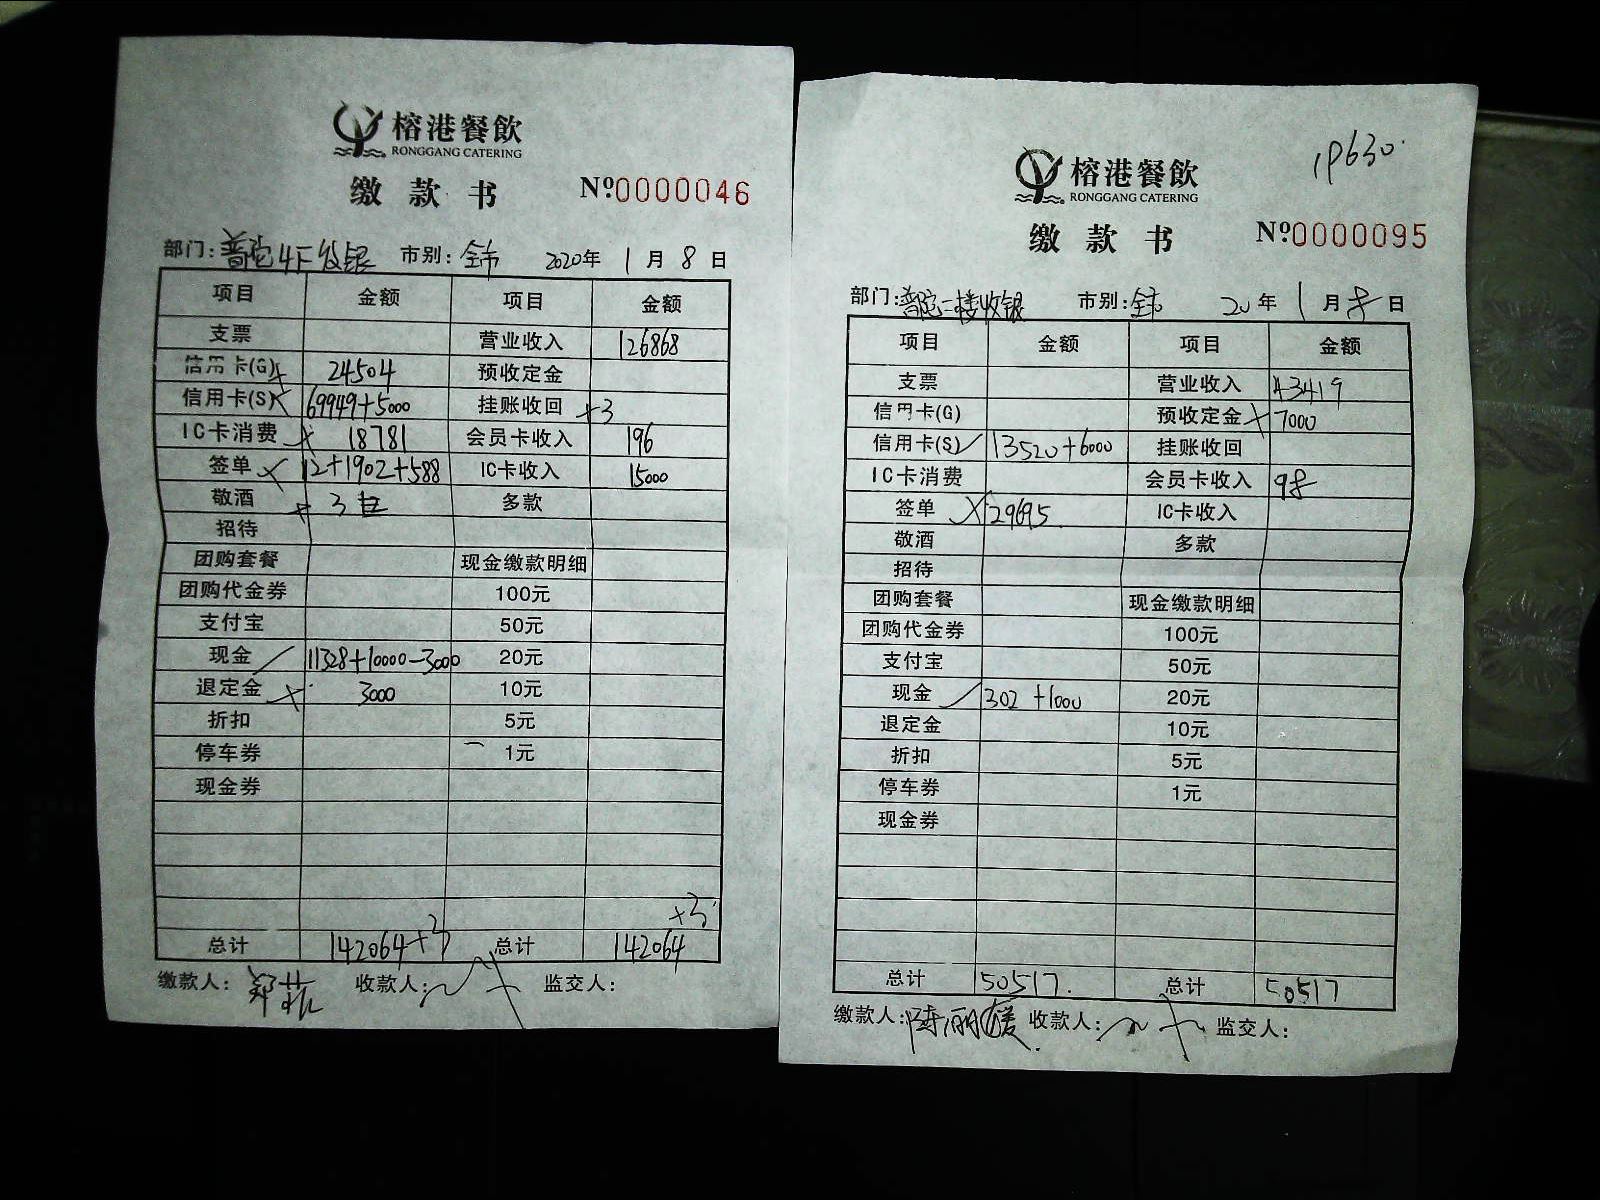 榕港餐飲
RONGGANG CATERING
缴款书 №0000046
部门:普陀4F收银 市别:全市 2020年1月8日
项目 金额 项目 金额
支票 营业收入 126868
信用卡(G) 24504 预收定金
信用卡(S) 69949+5000 挂账收回 +3
IC卡消费 18781 会员卡收入 196
签单 12+1902+588 IC卡收入 15000
敬酒 3 多款
招待
团购套餐 现金缴款明细
团购代金券 100元
支付宝 50元
现金 11328+10000-3000 20元
退定金 3000 10元
折扣 5元
停车券 1元
现金券
+3
总计 142064+3 总计 142064
缴款人: 收款人: 监交人:
19630
榕港餐飲
RONGGANG CATERING
缴款书 №0000095
部门:普陀二楼收银 市别:全市 20年1月8日
项目 金额 项目 金额
支票 营业收入 43419
信用卡(G) 预收定金 7000
信用卡(S) 13520+6000 挂账收回
IC卡消费 会员卡收入 98
签单 29695 IC卡收入
敬酒 多款
招待
团购套餐 现金缴款明细
团购代金券 100元
支付宝 50元
现金 302+1000 20元
退定金 10元
折扣 5元
停车券 1元
现金券
总计 50517. 总计 50517
缴款人:陈丽媛 收款人: 监交人: